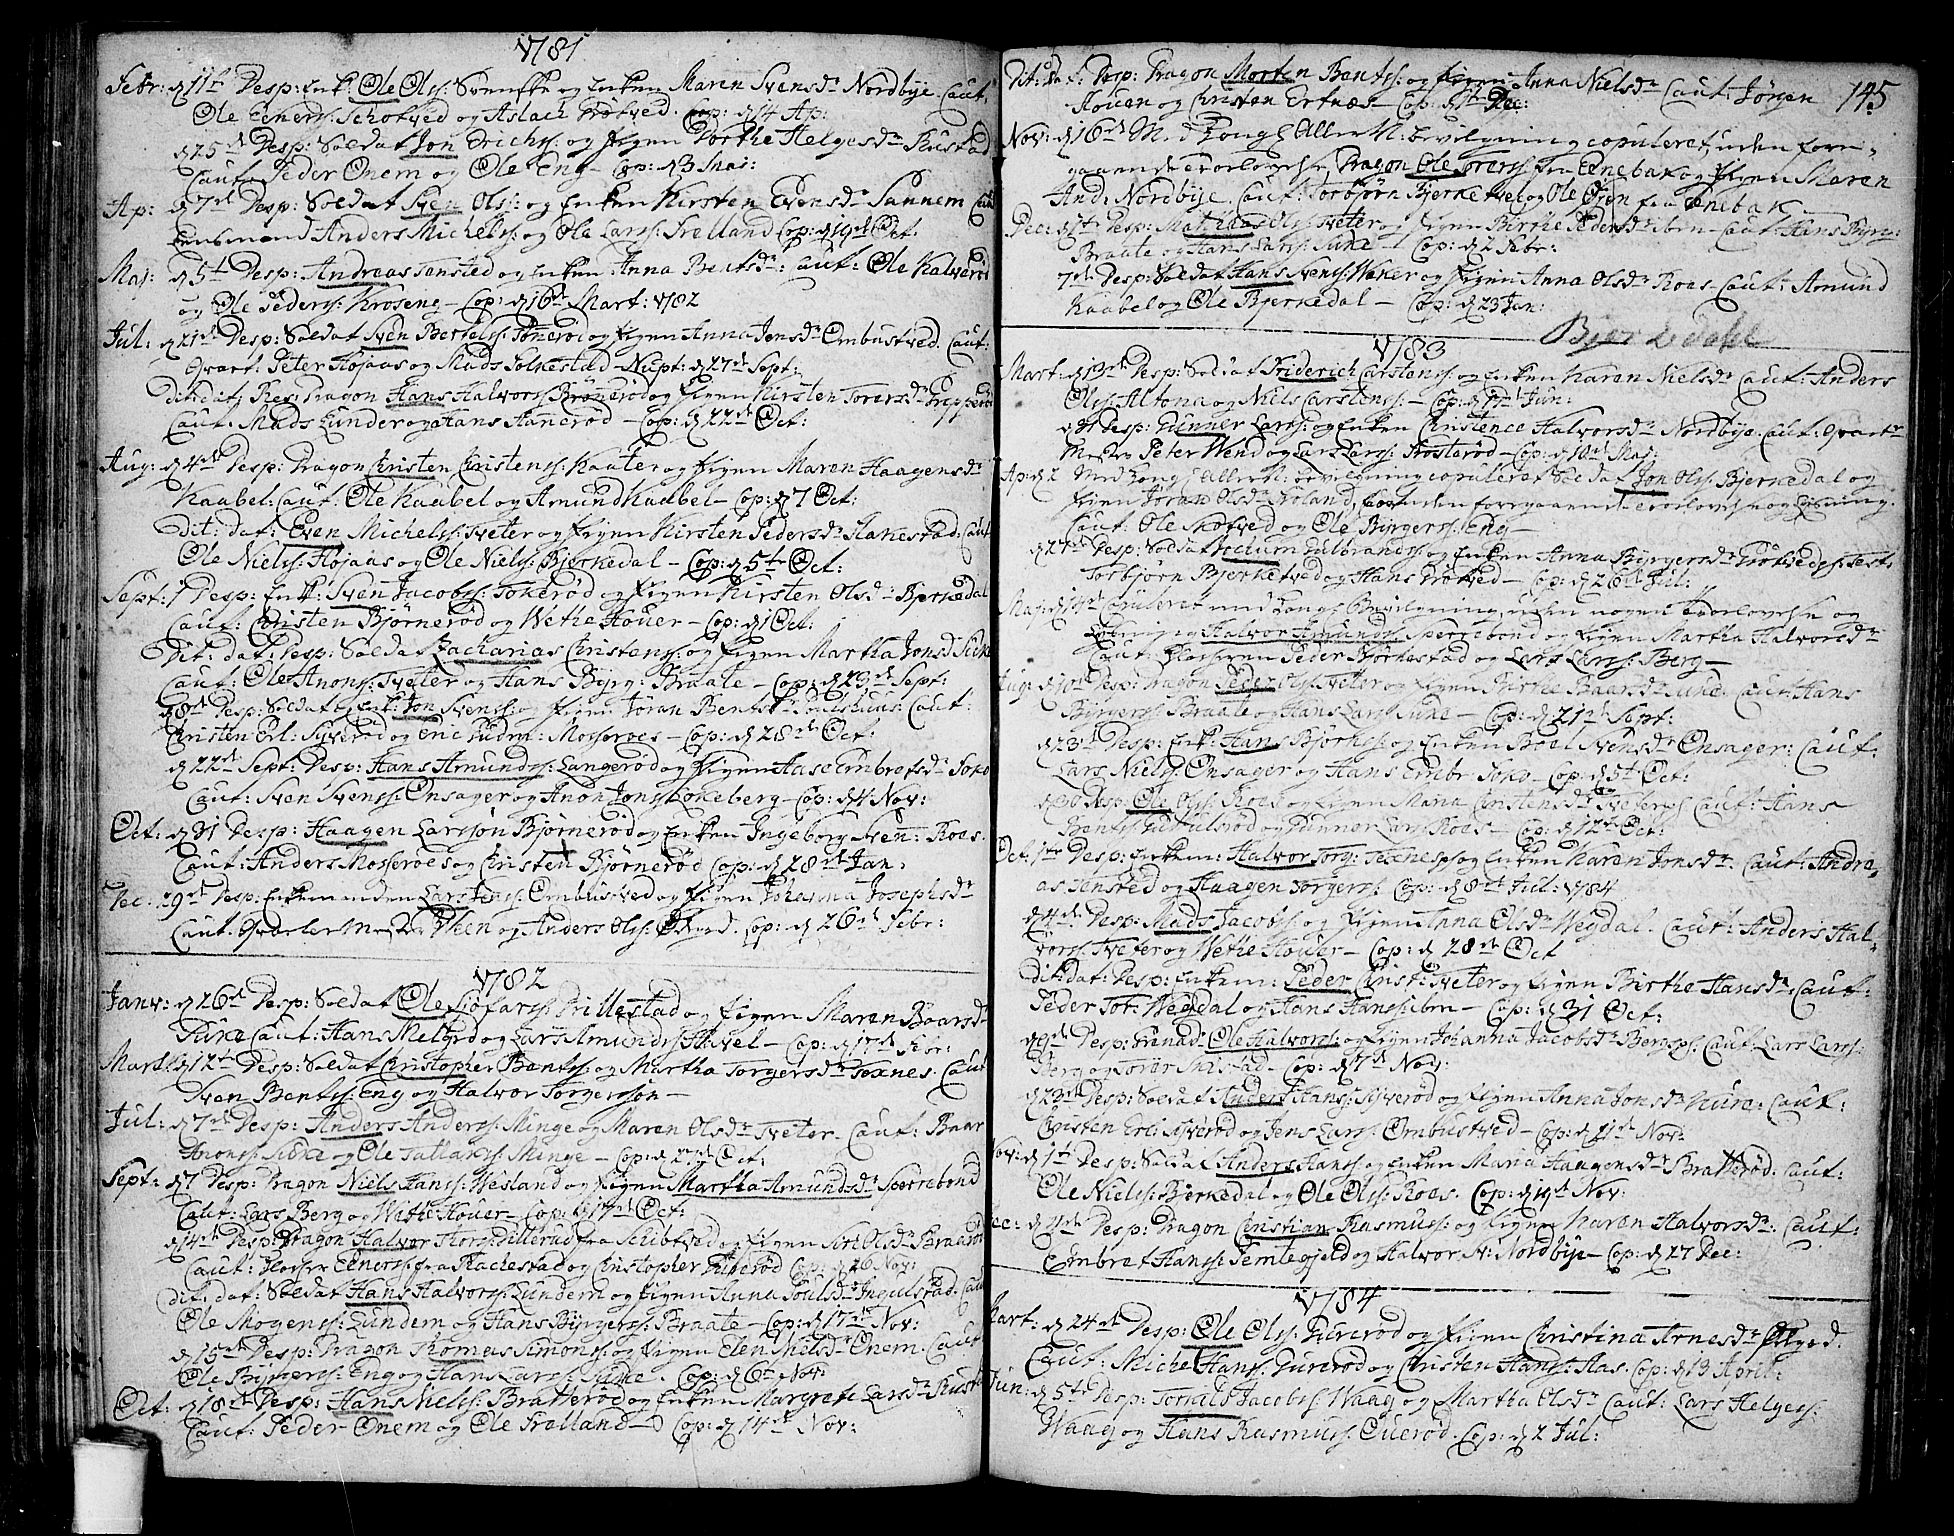 1781
Febr: d 11te Desp: Enk: Ole Ols: Svenske og Enken Maren Svensdr Nordbye. Caut:
Ole Eeners: Schotved og Aslach Trötved. Cop: d 14 Ap:
d 25d Desp: Soldat Jon Erichs: og Pigen Dorthe Helgesdr Rustad
Caut: Peder Onem og Ole Eng - Cop: d 3
Ap: d 7d Desp: Soldat Sven Ols: og Enken Kirsten Evensdr Sannem
Anders Michels: og Ole Lars: Trolland Cop: d 19d Oct:
Maj: d 5t Desp: Andreas Tensted og Enken Anna Bentsdr: Caut: Ole Kalveröe
og Ole Peders: Kroseng - Cop: d 16d Mart: 1782
Jul: d 21d Desp: Soldat Sven Bertels: og Pigen Anna Jensdr Ombustved. Caut:
Qvart: Peter Höjaas og Mads Folkestad - Nupt: d 27d Sept:
dit: dat: Desp: Dragon Hans Halvors: Bröneröd og Pigen Kirsten Toresdr
Caut: Mads Lunder og Hans Haneröd - Cop: d 22d Oct:
Aug: d 4d Desp: Dragon Christen Christens: Kaater og Pigen Maren Haagensdr
Kaabel: Caut: Ole Kaabel og Amund Kaabel - Cop: d 7 Oct:
Dit: dat: Even Michels: Tveter og Pigen Kirsten Pedersdr Hakestad: Caut
Ole Niels: Höjaas og Ole Niels: Bjerkedal - Cop: d 5te Oct:
Sept: 1 Desp: Enk: Sven Jacobs: Tokeröd og Pigen Kirsten Olsdr Bjerkedal
Caut: Christen Björneröd og Wethe Houer - Cop: d 1 Oct:
Dit: dat: Desp: Soldat Zacharias Christens: og Pigen Martha Jonsd
Caut: Ole Anons: Tveter og Hans Byrg: Braate - Cop: d 29d Sept:
d 8d Desp: Soldat og Enk: Jon Svens: og Pigen Joran Bentsdr Caut:
Christen Erl: Syveröd og Enc Gudm: Mosseroes - Cop: d 28d Oct:
d 22d Sept: Desp: Hans Amunds: Langeröd og Pigen Aase Embretsdr Soko
Caut: Sven Svens: Onsager og Anon Jons: Loneberg - Cop: d 4 Nov:
Oct: d 31 Desp: Haagen Larssøn Björneröd og Enken Ingeborg Sven: Roes.
Caut: Anders Mosseroes og Christen Björneröd Cop: d 28d Jan:
Dec: 29d Desp: Enkemanden Lars Jens: Ombustved og Pigen Johanna Josephsdr
Caut: Qvarteer Mester Ween og Anders Ols: Ökgrd. Cop: d 26d Febr:
1782
Janv: d 26d Desp: Soldat Ole Sjöfars: Grillestad og Pigen Maren Baarsdr
Sune Caut: Hans Melgrd og Lars Amunds: Hevel - Cop: d 17d Febr:
Mart: d 12d Desp: Soldat Christopher Bents: og Martha Torgersdr Texnes. Caut
Sven Bents: Eng og Halvor Torgerssøn -
Jul: d 7d Desp: Anders Anders: Minge og Maren Olsdr Tveter - Caut: Baar
Anons: Sune og Ole Tallaks: Minge - Cop: d 22d Oct:
Sept: d 7 Desp: Dragon Niels Hans: Wesland og Pigen Martha Amundsdr Sperrebond
Caut: Lars Berg og Wethe Houer - Cop: d 17d Oct:
d 14d Desp: Dragon Halvor Thors: Dilleröd fra Schibtved og Pigen Siri Olsdr Braaröd
Caut: Eeners: fra Rachestad og Christopher Cop: d 26 Nov:
dit: dat: Soldat Hans Halvors: Lundem og Pigen Anna Poulsdr Ingulstad. Caut
Ole Mogens: Lundem og Hans Byrgers: Braate - Cop: d 17d Nov:
d 15d Desp: Dragon Thomas Simons: og Pigen Elen Nielsdr Onem. Caut
Ole Byrgers: Eng og Hans Lars: Sune. Cop: d 6d Nov:
Oct: d 18d Desp: Hans Niels: Bratteröd og Enken Margrete Larsdr
Caut: Peder Onem og Ole Trolland - Cop: d 14d Nov:
145
Dit: dat: Desp: Dragon Morten Bents: og Pigen Anna Nielsdr Caut: Jörgen
Houen og Christen Ertnæs - Cop: d Dec:
Nov: d 16d M. d Kongl: Aller N: bevilgning copuleret, uden forri-
gaaende Trolovelse, Dragon Ole Tores: fra Enebak og Pigen Maren
And: Nordbye. Caut: Torbjörn Bjerketved og Ole Öjen fra Enebak.
Dec: d 1t Desp: Mathias Ols: Tveter og Pigen Birthe Pedersdr ibm - Caut: Hans Byrg:
Braate og Hans Lars: Sune - Cop: d 2 Febr:
7d Desp: Soldat Hans Svens: Wener og Pigen Anna Olsdr Roes - Caut: Amund
Kaabel og Ole Bjerkedal - Cop: d 23 Jan:
Bjerkedahl
1783
Mart: d 13d Desp: Soldat Friderich Carstens: og Enken Karen Nielsdr Caut: Anders
Ols: Altona og Niels Carstens: - Cop: d 17d Jun:
Desp: Gunner Lars: og Enken Christence Halvorsdr Nordbye. Caut: Qvartr
Mestr Peter Wend og Lars Lars: Frosteröd - Cop: d 10d Maj:
Ap: d 2 Med Kongl: Allern: bevilgning copuleret Soldat Jon Ols: Bjerkedal og
Pigen Joran Olsdr Roland, uden foregaaende Trolovelse og Lysning.
Caut: Ole Skotved og Ole Byrgers: Eng -
d 27d Desp: Soldat Jochum Gulbrands: og Enken Anna Byrgersdr Trötved. Test:
Torbjörn Bjerketved og Hans Trötved - Cop: d 26d Jul:
Maj: d 14d Copuleret med Kongl: Bevilgning, uden nogen Trolovelse og
Lysning Halvor Amunds: Sperrebond og Pigen Martha Halvorsdr
Caut: Peder Björkestad og Lars Lars: Berg -
Aug: d 10d Desp: Dragon Peder Ols: Tveter og Pigen Birthe Baarsdr Sune. Caut: Hans
Byrgers: Braate og Hans Lars: Sune - Cop: d 21d Sept:
d 23d Desp: Enk: Hans Björks: og Enken Boel Svensdr Onsager: Caut:
Lars Niels: Onsager og Hans Embr: Soko - Cop: d 5t Oct:
d 30 Desp: Ole Ols: Roes og Pigen Maria Christensdr Caut: Hans
Bents: og Gunner Lars: Roes - Cop: d 12d Oct:
Oct: 1te Desp: Enkem: Halvor Torg: Texnes og Enken Karen Jonsdr. Caut: Andre-
as Tensted og Haagen Torgers: Cop: d 8d Jul: 1784
d 4d Desp: Mads Jacobs: og Pigen Anna Olsdr Wegdal. Caut: Anders Hal-
vors: Tveter og Wethe Houer - Cop: d 28d Oct
Dit: dat: Desp: Enkem: Peder Christ: Tveter og Pigen Birthe Hansdr: Caut:
Peder Tor: Wegdal og Hans Hans: ibm - Cop: d 31 Oct:
d 9d Desp: Grenadr Ole Halvors: og Pigen Johanna Jacobsdr Caut: Lars Lars:
Berg og Tores Skistad. Cop: d 7d Nov:
d 23d Desp: Soldat Anders Hans: Syveröd og Pigen Anna Jonsdr Caut:
Christen Erl: Syveröd og Jens Lars: Ombustved - Cop: d 11d Nov:
Nov: d 1t Desp: Soldat Anders Hans: og Enken Maria Haagensdr Bratteröd. Caut:
Ole Niels: Bjerkedal og Ole Ols: Roes. Cop: d 19d Nov:
Dec: d Desp: Dragon Christian Rasmus: og Pigen Karen Halvorsdr: Caut:
Embret Hans: Temtegjeld og Halvor Sv: Nordbye - Cop: d 27 Dec:
1784
Mart: d 24d Desp: Ole Ols: Gureröd og Pigen Christina Arnesdr Ökgrd.
Caut: Michel Hans: Gureröd og Christen Hans: Aas. Cop: d 13 April:
Jun: d 5t Desp: Torrald Jacobs: Waag og Martha Olsdr Caut: Lars Helges:
Waag og Hans Rasmus: Cueröd. Cop: d 2 Jul: